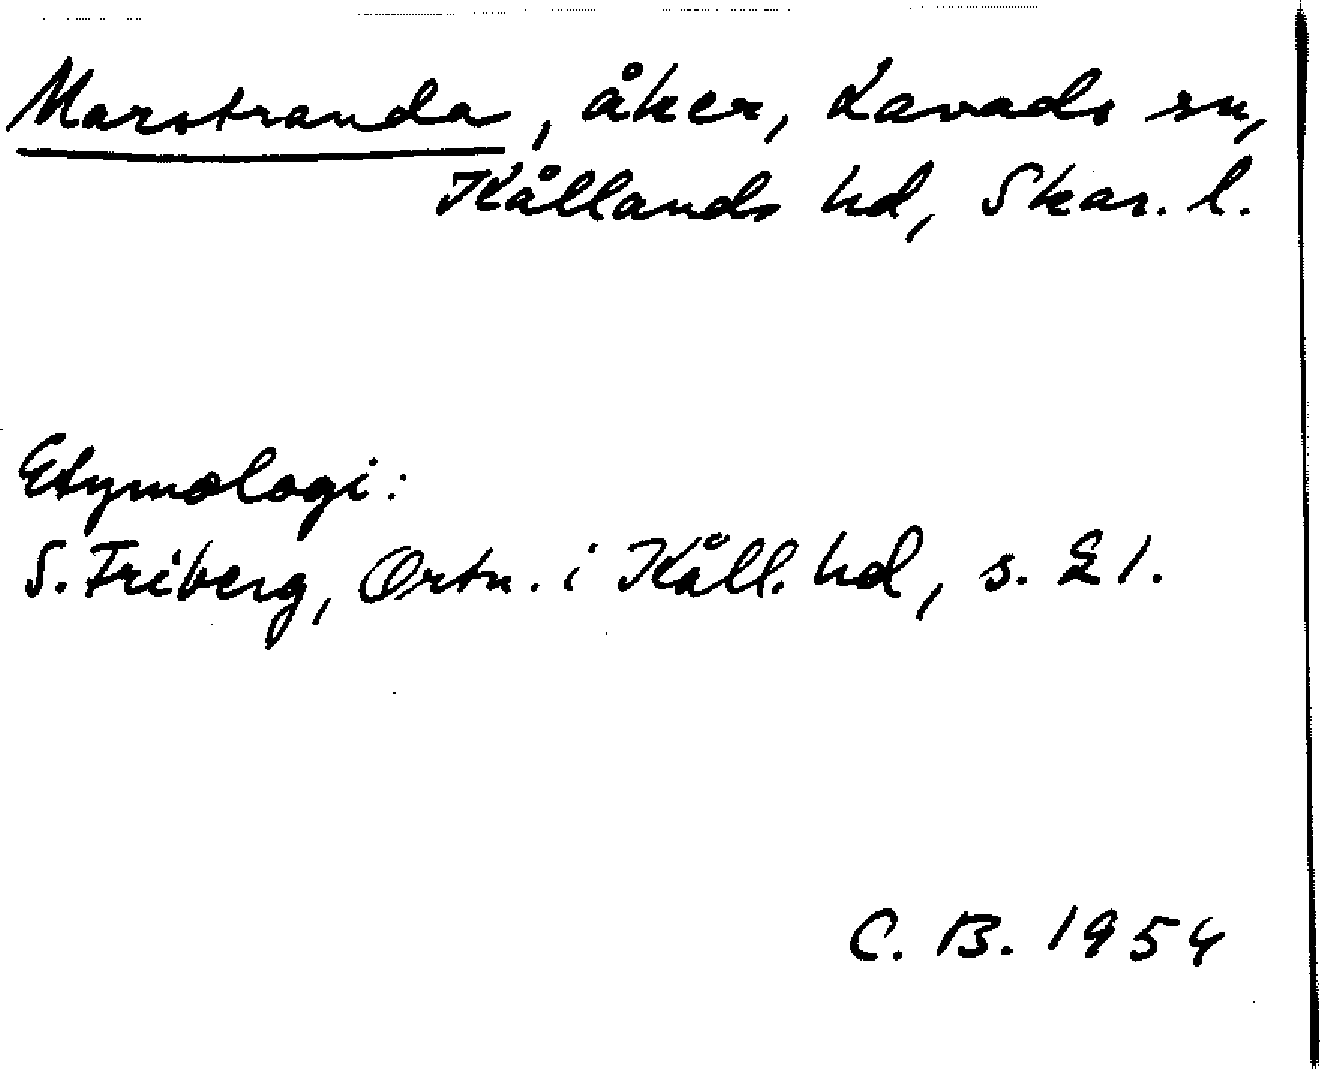 Marstranda, åker, Lavads sn,
Kållands hd, Skar. l.
Etymologi:
S. Friberg, Ortn. i Kåll. hd, s. 21.
C. B. 1954